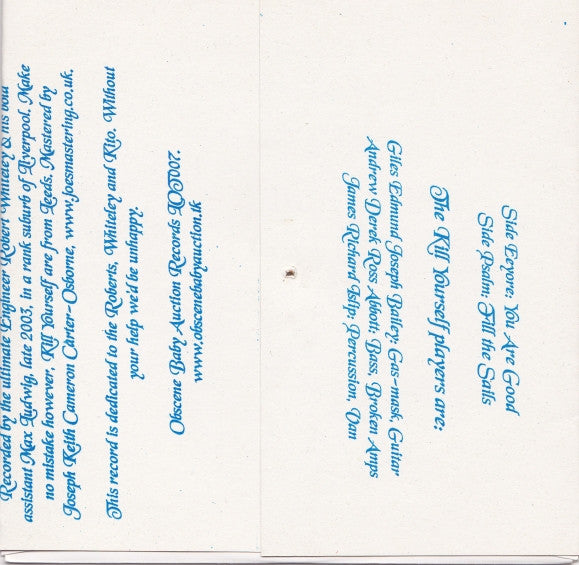 Side Eeyore: You Are Good
Side Psalm: Fill the Sails
The Kill Yourself players are:
Giles Edmund Joseph Bailey: Gas-mask, Guitar
Andrew Derek Ross Abbott: Bass, Broken Amps
James Richard Islip: Percussion,
Recorded by the ultimate Engineer Robert Whiteley & his
assistant Max Ludwig, late 2003, in a rank suburb of Liverpool. Make
no mistake however, Kill Yourself are from Leeds. Mastered by
Joseph Keith Cameron Carter-Osborne, www.joesmastering.co.uk.
This record is dedicated to the Roberts, Whiteley and Kito. Without
your help we'd be unhappy.
Obscene Baby Auction Records LOT007.
www.obscenebabyauction.tk